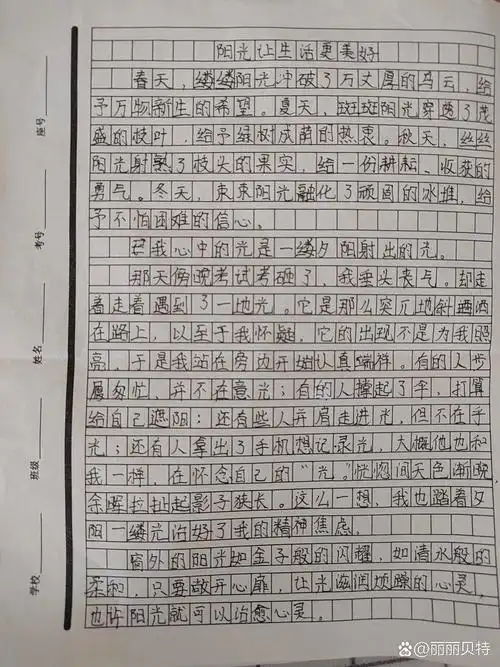 阳光让生活更美好
春天，缕缕阳光冲破了万丈厚的乌云，给
予万物新生的希望。夏天，斑斑阳光穿透了茂
盛的枝叶，给予绿树成荫的热衷。秋天，丝丝
阳光射熟了枝头的果实，给一份耕耘、收获的
勇气。冬天，束束阳光融化了顽固的冰堆，给
予不怕困难的信心。
我心中的光是一缕夕阳射出的光。
那天傍晚考试考砸了，我垂头丧气。却走
着走着遇到了一地光。它是那么突兀地斜洒
在路上，以至于我怀疑，它的出现不是为我照
亮，于是我站在旁边开始认真端祥。有的人步
履匆忙，并不在意光；有的人撑起了伞，打算
给自己遮阳；还有些人并肩走进光，但不在乎
光；还有人拿出了手机想记录光，大概他也和
我一样，在怀念自己的"光"。恍惚间天色渐晚，
余晖拉扯起影子狭长。这么一想，我也踏着夕
阳一缕光治好了我的精神焦虑。
窗外的阳光如金子般的闪耀，如清水般的
柔和，只要敞开心扉，让光滋润烦躁的心灵，
也许阳光就可以治愈心灵。
座号
考号
姓名
班级
学校
@丽丽贝特